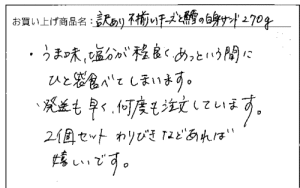 お買い上げ商品名: 訳あり 不揃いチーズと鱈の白身サンド270g
・うま味、塩分が程良くあっという間に
ひと袋食べてしまいます。
・発送も早く、何度も注文しています。
2個セット わりびきなどあれば
嬉しいです。